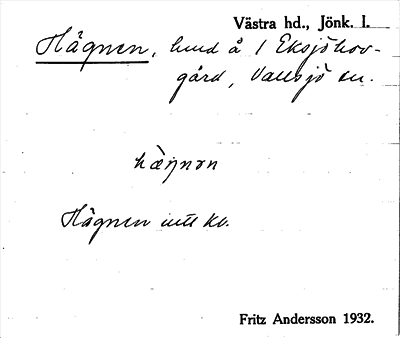 Västra hd., Jönk. l.
Hägnen, hund å 1 Eksjöhov-
gård, Vallsjö sn.
hæ̀ŋnən
Hägnen intt kv.
Fritz Andersson 1932.